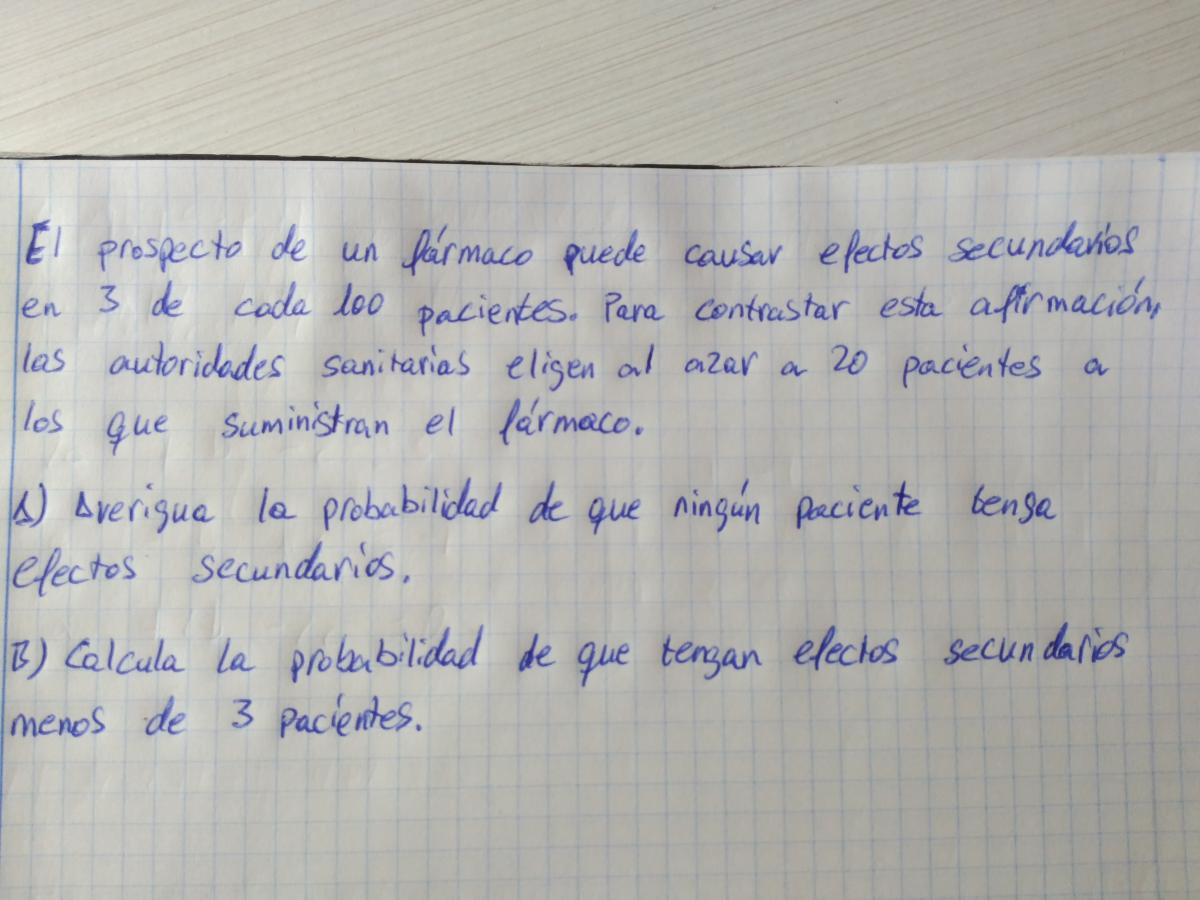 El prospecto de un fármaco puede causar efectos secundarios
en 3 de cada 100 pacientes. Para contrastar esta afirmación,
las autoridades sanitarias eligen al azar a 20 pacientes a
los que suministran el fármaco.
A) Averigua la probabilidad de que ningún paciente tenga
efectos secundarios.
B) Calcula la probabilidad de que tengan efectos secundarios
menos de 3 pacientes.